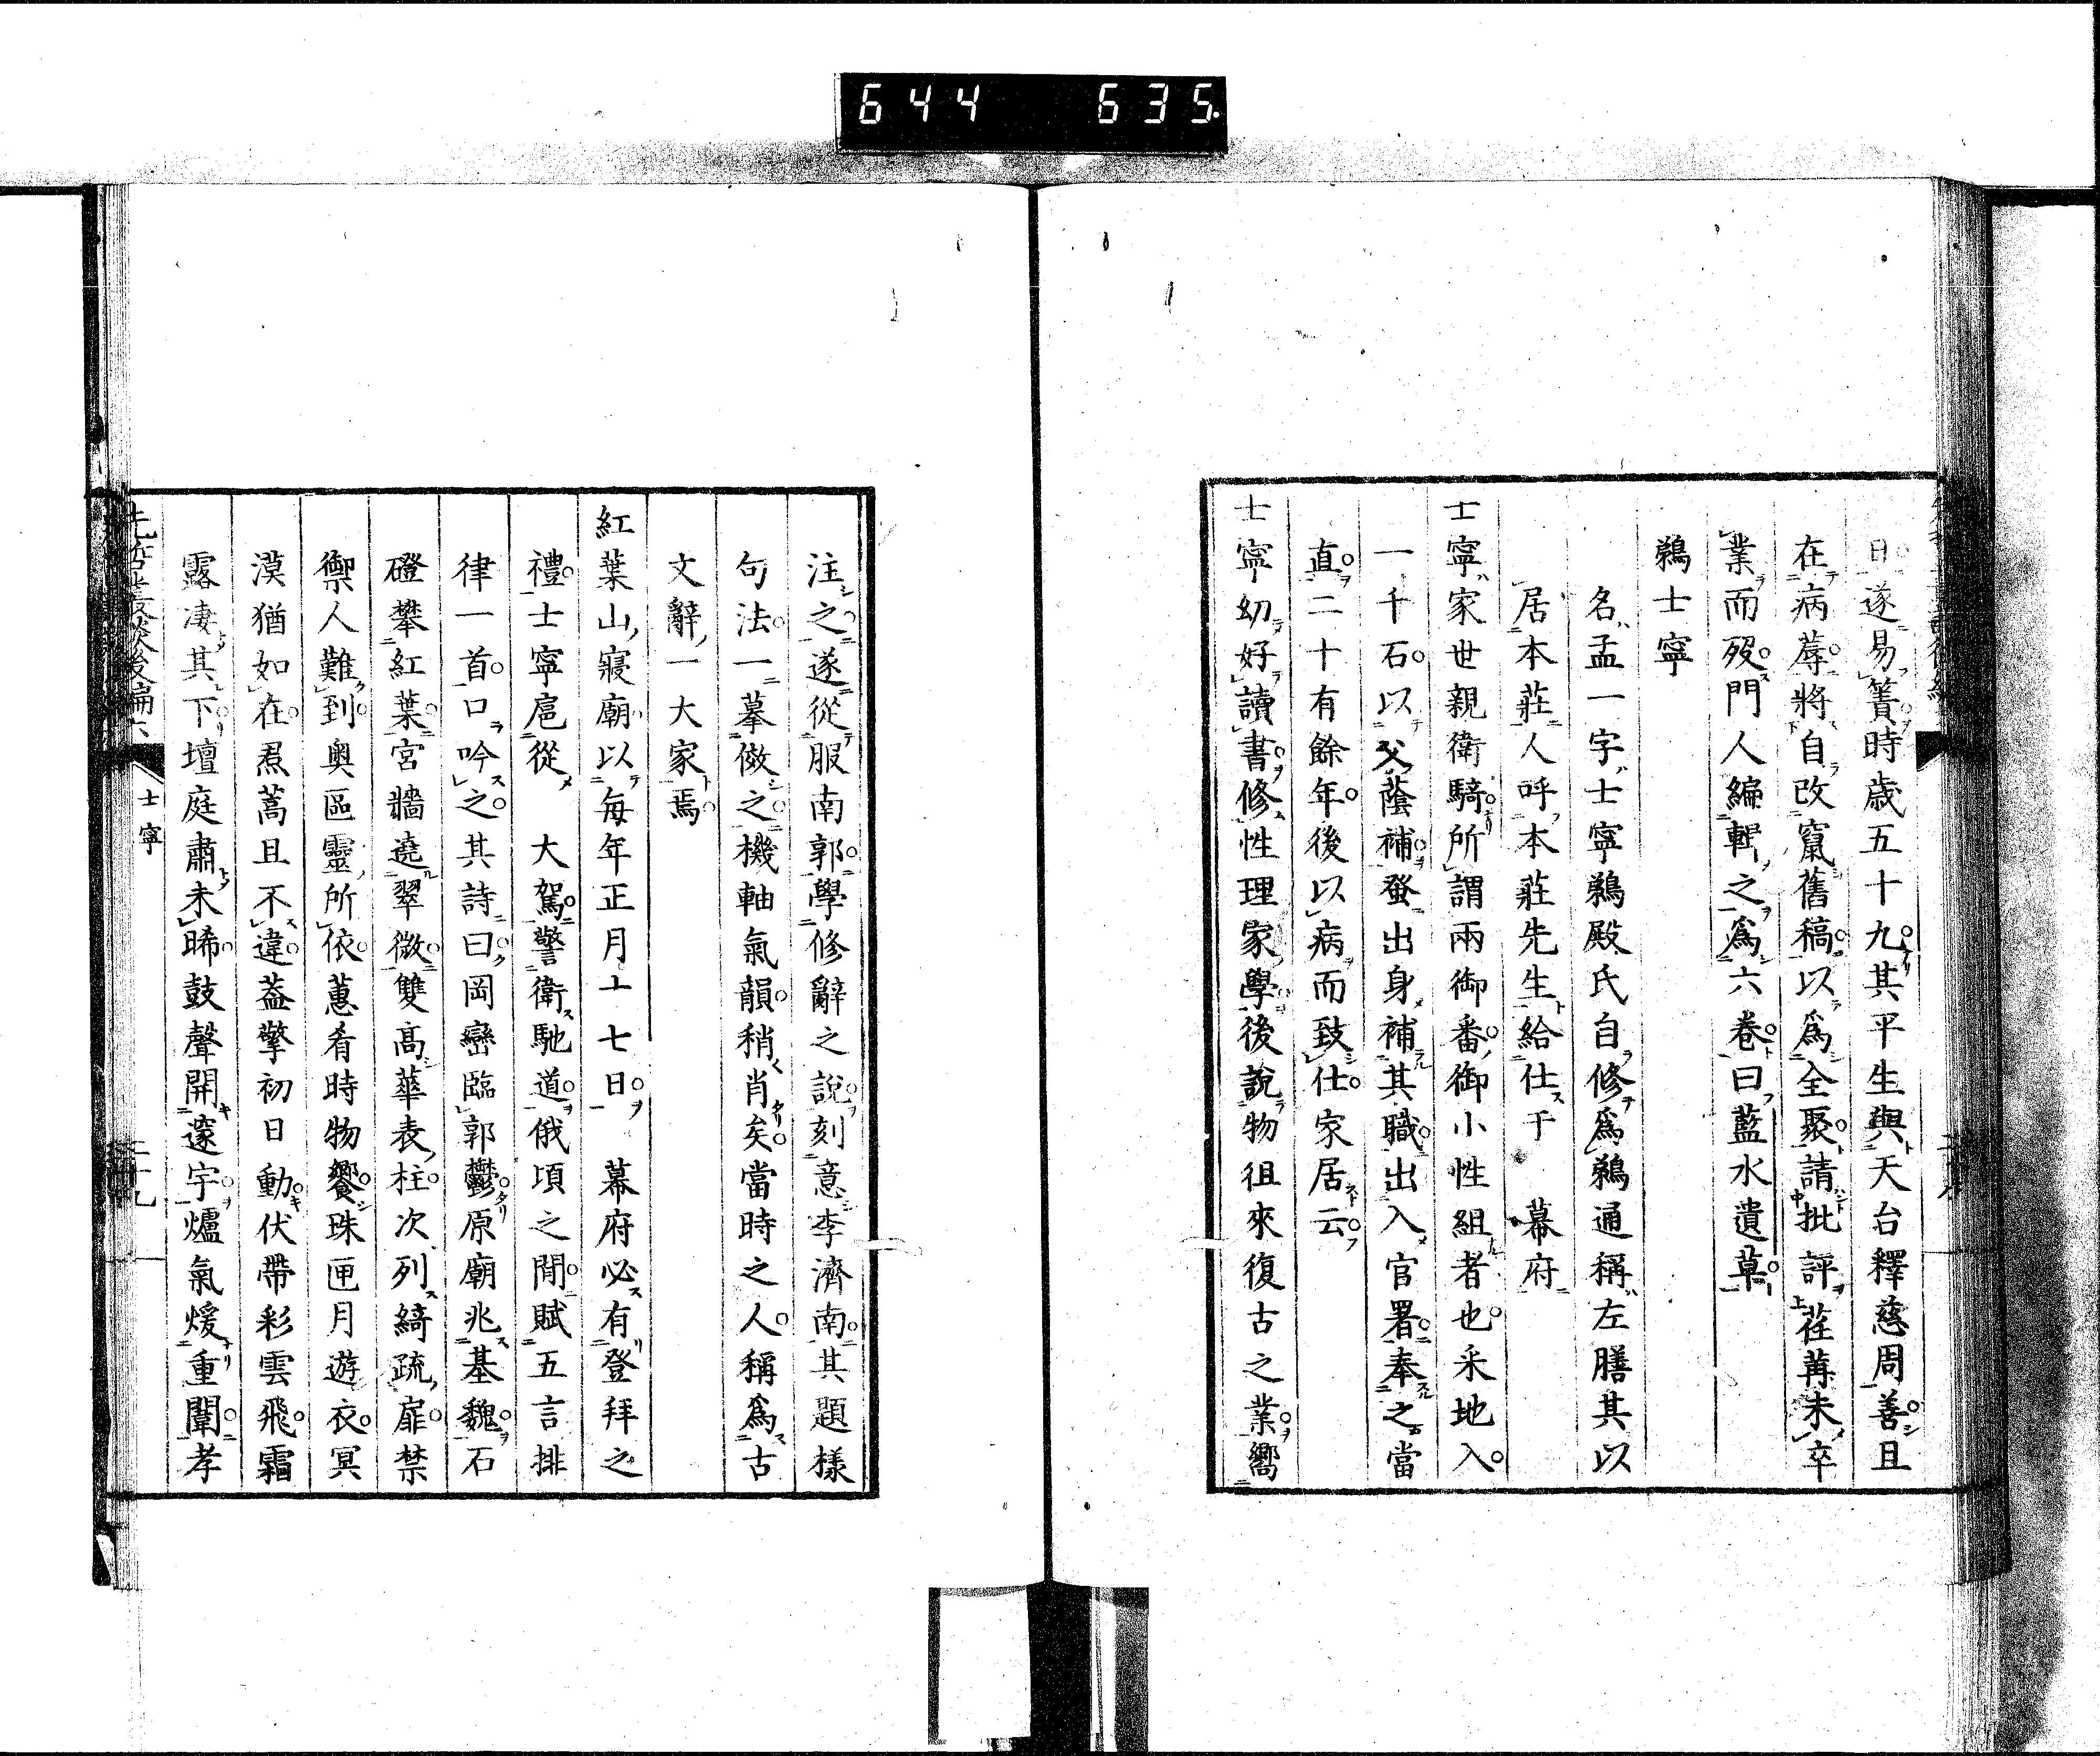 644 635
日遂易簀時歲五十九其平生與天台釋慈周善且
在病蓐將自改竄舊稿以爲全聚請批評荏苒未卒
業而歿門人編輯之爲六卷曰藍水遺草
鵜士寧
名孟一字士寧鵜殿氏自修爲鵜通稱左膳其以
居本莊人呼本莊先生給仕于 幕府
士寧家世親衛騎所謂兩御番御小性組者也采地入
一千石以父蔭補蚤出身補其職出入官署奉之當
直二十有餘年後以病而致仕家居云
士寧幼好讀書修性理家學後說物徂來復古之業嚮
注之遂從服南郭學修辭之說刻意李濟南其題樣
句法一摹倣之機軸氣韻稍肖矣當時之人稱爲古
文辭一大家焉
紅葉山寢廟以每年正月十七日 幕府必有登拜之
禮士寧扈從 大駕警衛馳道俄頃之間賦五言排
律一首口吟之其詩曰岡巒臨郭鬱原廟兆基魏石
磴攀紅葉宮牆遶翠微雙高華表柱次列綺疏扉禁
禦人難到奧區靈所依蕙肴時物饗珠匣月遊衣冥
漠猶如在焄蒿且不違蓋擎初日動伏帶彩雲飛霜
露凄其下壇庭肅未晞鼓聲開邃宇爐氣煖重闈孝
先哲叢談後編六 士寧 二十九